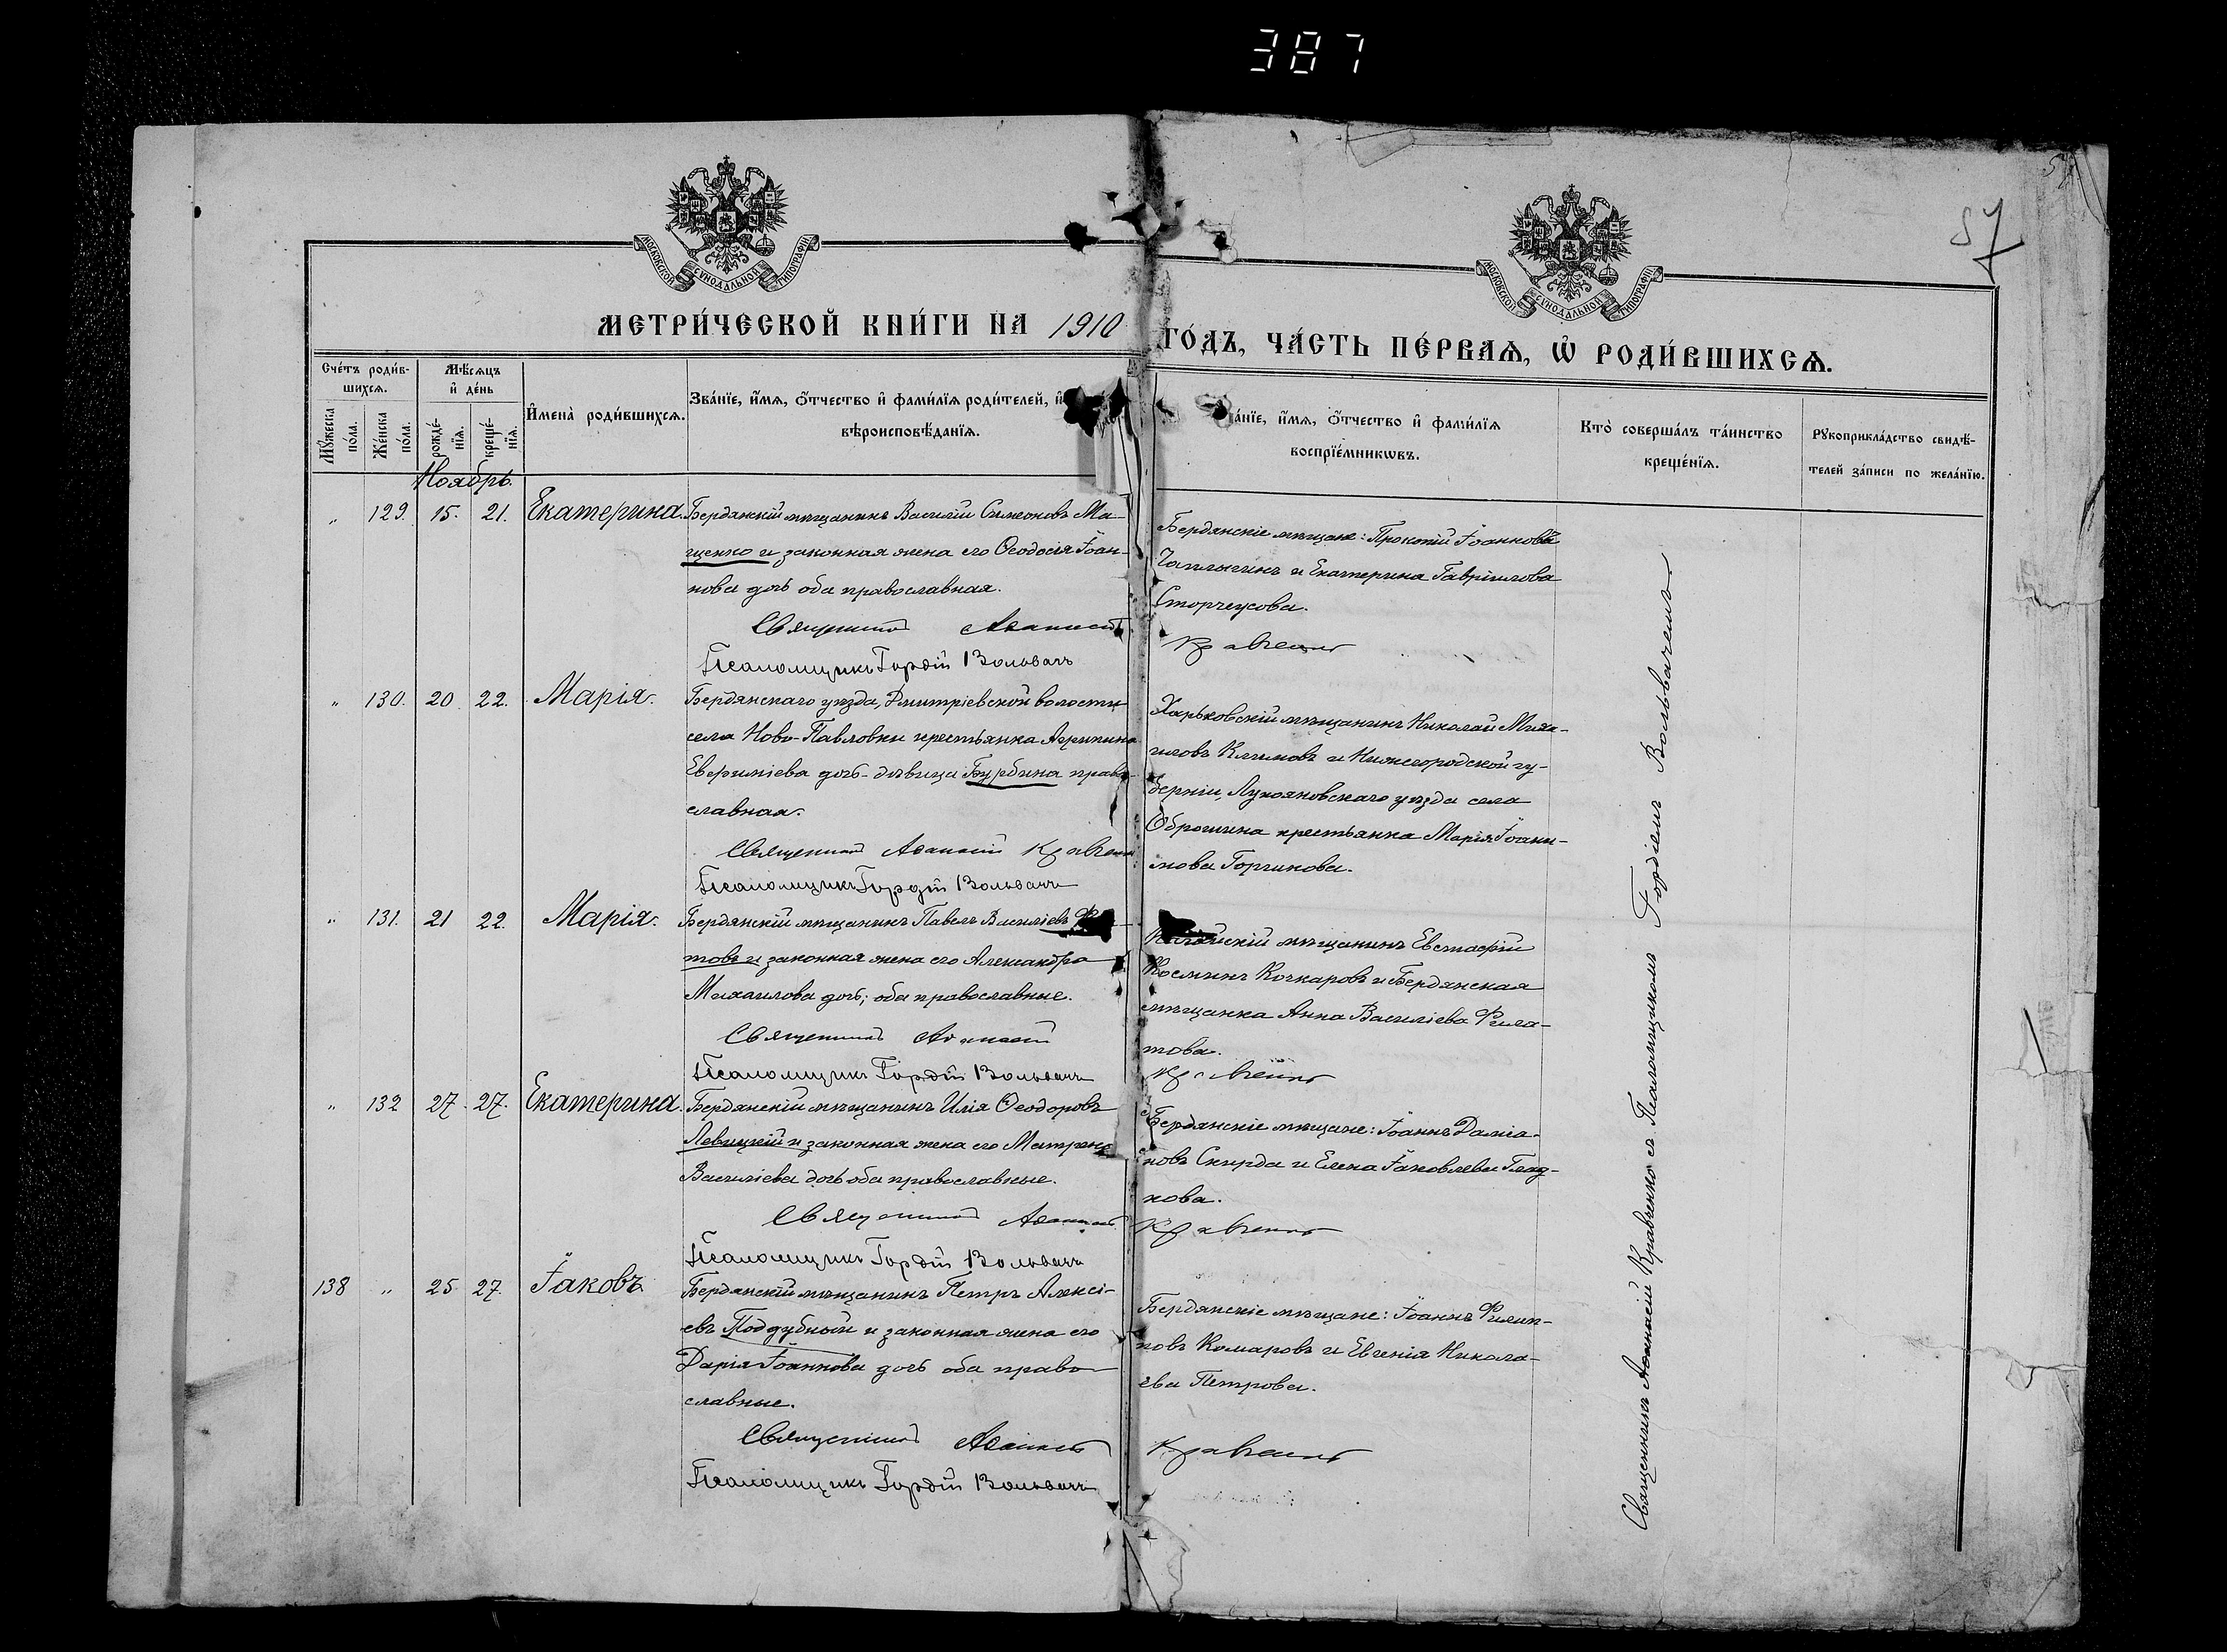 387
57
МОСКОВСКОЙ СѴНОДАЛЬНОЙ ТИПОГРАФІИ
МОСКОВСКОЙ СѴНОДАЛЬНОЙ ТИПОГРАФІИ
МЕТРИ́ЧЕСКОЙ КНИ́ГИ НА 1910 ГО́ДЪ, ЧА́СТЬ ПЕ́РВАѦ, Ѡ РОДИ́ВШИХСѦ.
Сче́тъ роди́в-
шихсѧ.
Мꙋ́жеска по́ла.
Же́нска по́ла.
Мѣ́сѧцъ
и де́нь
рожде́-
нїѧ.
креще́-
нїѧ.
Имена̀ роди́вшихсѧ.
Зва́нїе, и́мѧ, о́тчество и фами́лїѧ роди́телей, и
вѣроисповѣ́данїѧ.
а́нїе, и́мѧ, о́тчество и фами́лїѧ
воспрїе́мникѡвъ.
Кто̀ соверша́лъ та́инство
креще́нїѧ.
Рꙋкоприкла́дство свидѣ́-
телей за́писи по жела́нїю.
Ноябрь.
" 129. 15. 21. Екатерина.
Бердянскій мѣщанинъ Василій Симеоновъ Ма-
щенко и законная жена его Ѳеодосія Іоан-
нова дочь оба православная.
Священникъ Аѳанасій
Кравченко
Псаломщикъ Гордій Вольвачъ
Бердянскіе мѣщане: Прокопій Іоанновъ
Чаплыгинъ и Екатерина Гавріилова
Сторчеусова.
" 130. 20 22. Марія.
Бердянскаго уѣзда, Дмитріевской волости
села Ново-Павловки крестьянка Агрипина
Евфиміева дочь - дѣвица Бурбина право-
славная.
Священникъ Аѳанасій Кравченко
Псаломщикъ Гордій Вольвачъ
Харьковскій мѣщанинъ Николай Миха-
иловъ Климовъ и Нижегородской гу-
берніи, Лукояновскаго уѣзда села
Оброчина крестьянка Марія Іоан-
нова Горчинова.
" 131. 21 22. Марія.
Бердянскій мѣщанинъ Павелъ Василіевъ
товъ и законная жена его Александра
Михаилова дочь; оба православные.
Священникъ Аѳанасій
Кравченко
Псаломщикъ Гордій Вольвачъ
мѣщанинъ Евстафій
Косминъ Кочкаровъ и Бердянская
мѣщанка Анна Василіева Фила-
това.
" 132 27. 27. Екатерина.
Бердянскій мѣщанинъ Илія Ѳеодоровъ
Левицкій и законная жена его Матрона
Василіева дочь оба православные.
Священникъ Аѳанасій
Кравченко
Псаломщикъ Гордій Вольвачъ
Бердянскіе мѣщане: Іоаннъ Даміа-
новъ Скирда и Елена Іаковлева Глад-
кова.
138 " 25 27. Іаковъ
Бердянскій мѣщанинъ Петръ Алексі-
евъ Поддубный и законная жена его
Дарія Іоаннова дочь оба право-
славные.
Священникъ Аѳанасій
Кравченко
Псаломщикъ Гордій Вольвачъ
Бердянскіе мѣщане: Іоаннъ Филип-
повъ Комаровъ и Евгенія Никола-
ева Петрова.
Священникъ Аѳанасій Кравченко съ Псаломщикомъ Гордіемъ Вольвачемъ